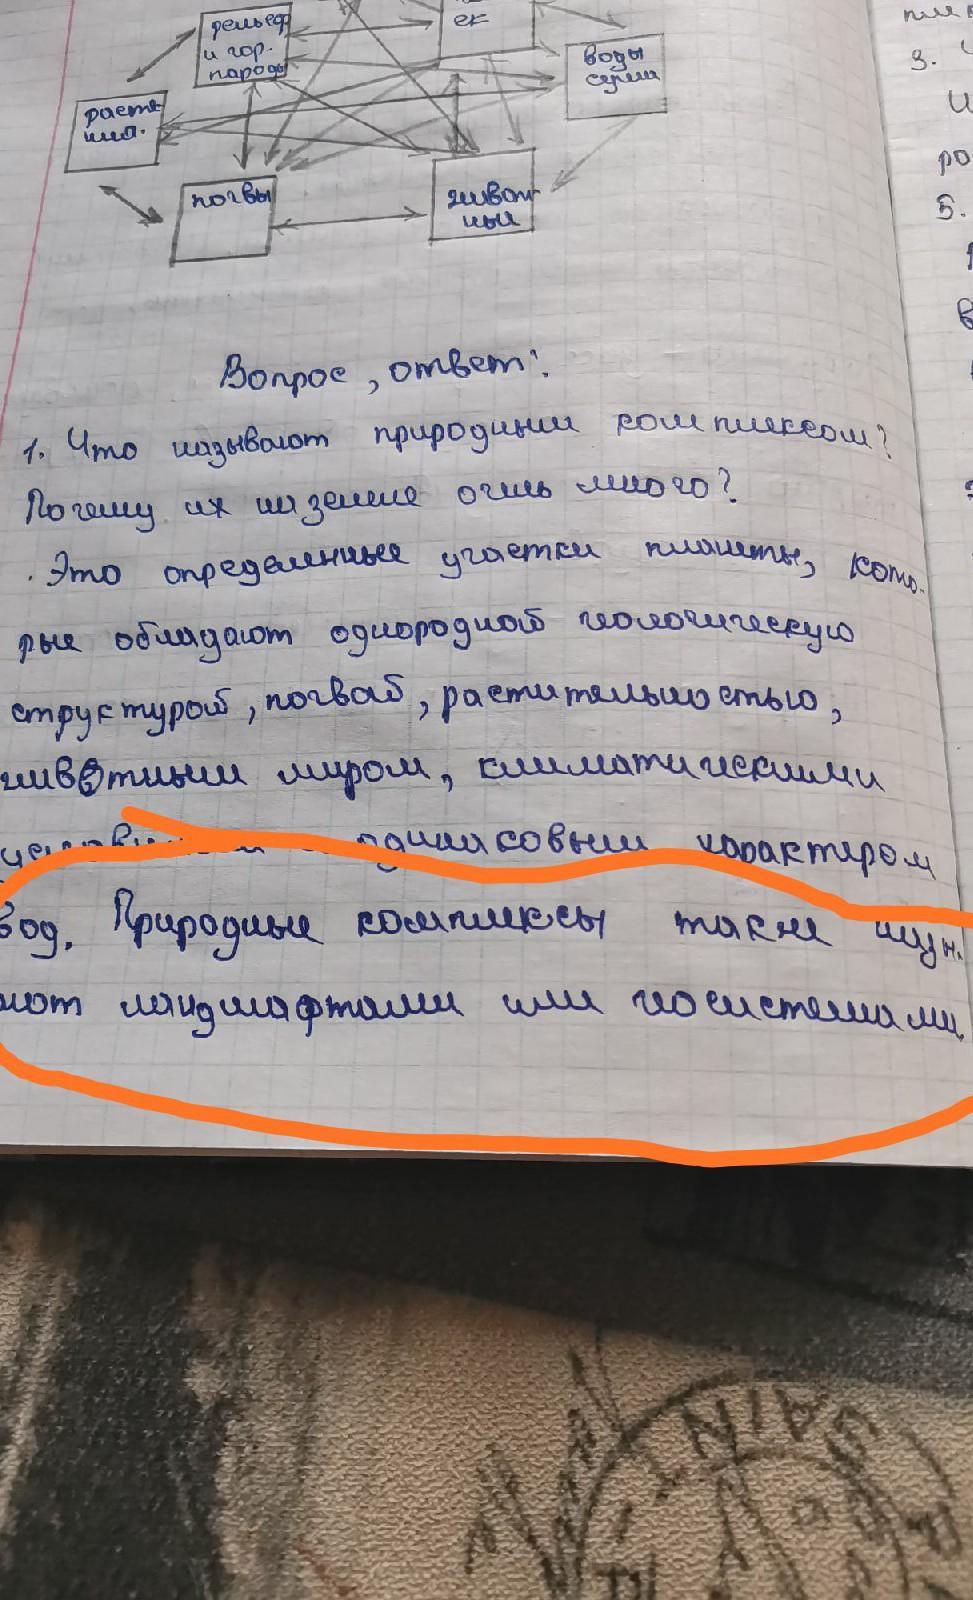 рельеф
и гор.
пароды
ек
воды
суши
расте-
ния.
почвы
живот-
ные
Вопрос, ответ:
1. Что называют природным комплексом?
Почему их на земле очень много?
Это определенные участки планеты, кото-
рые обладают однородной геологическую
структурой, почвой, растительностью,
животным миром, климатическими
условиями одинаковым характером
вод. Природные комплексы также
ландшафтами или геосистемами.
3.
5.